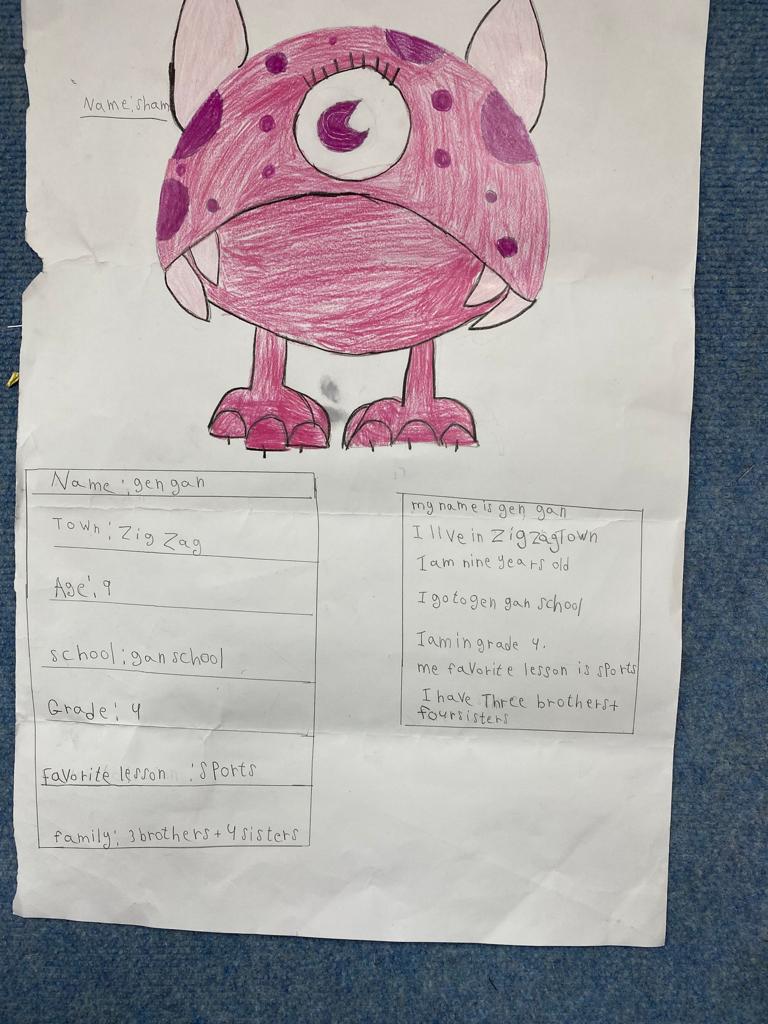 Name: sham
Name: gen gan
Town: Zig Zag
Age: 9
school: gan school
Grade: 4
favorite lesson : sports
family: 3 brothers + 4 sisters
my name is gen gan
I live in Zig Zag Town
I am nine years old
I go to gen gan school
I am in grade 4.
me favorite lesson is sports
I have Three brothers +
four sisters